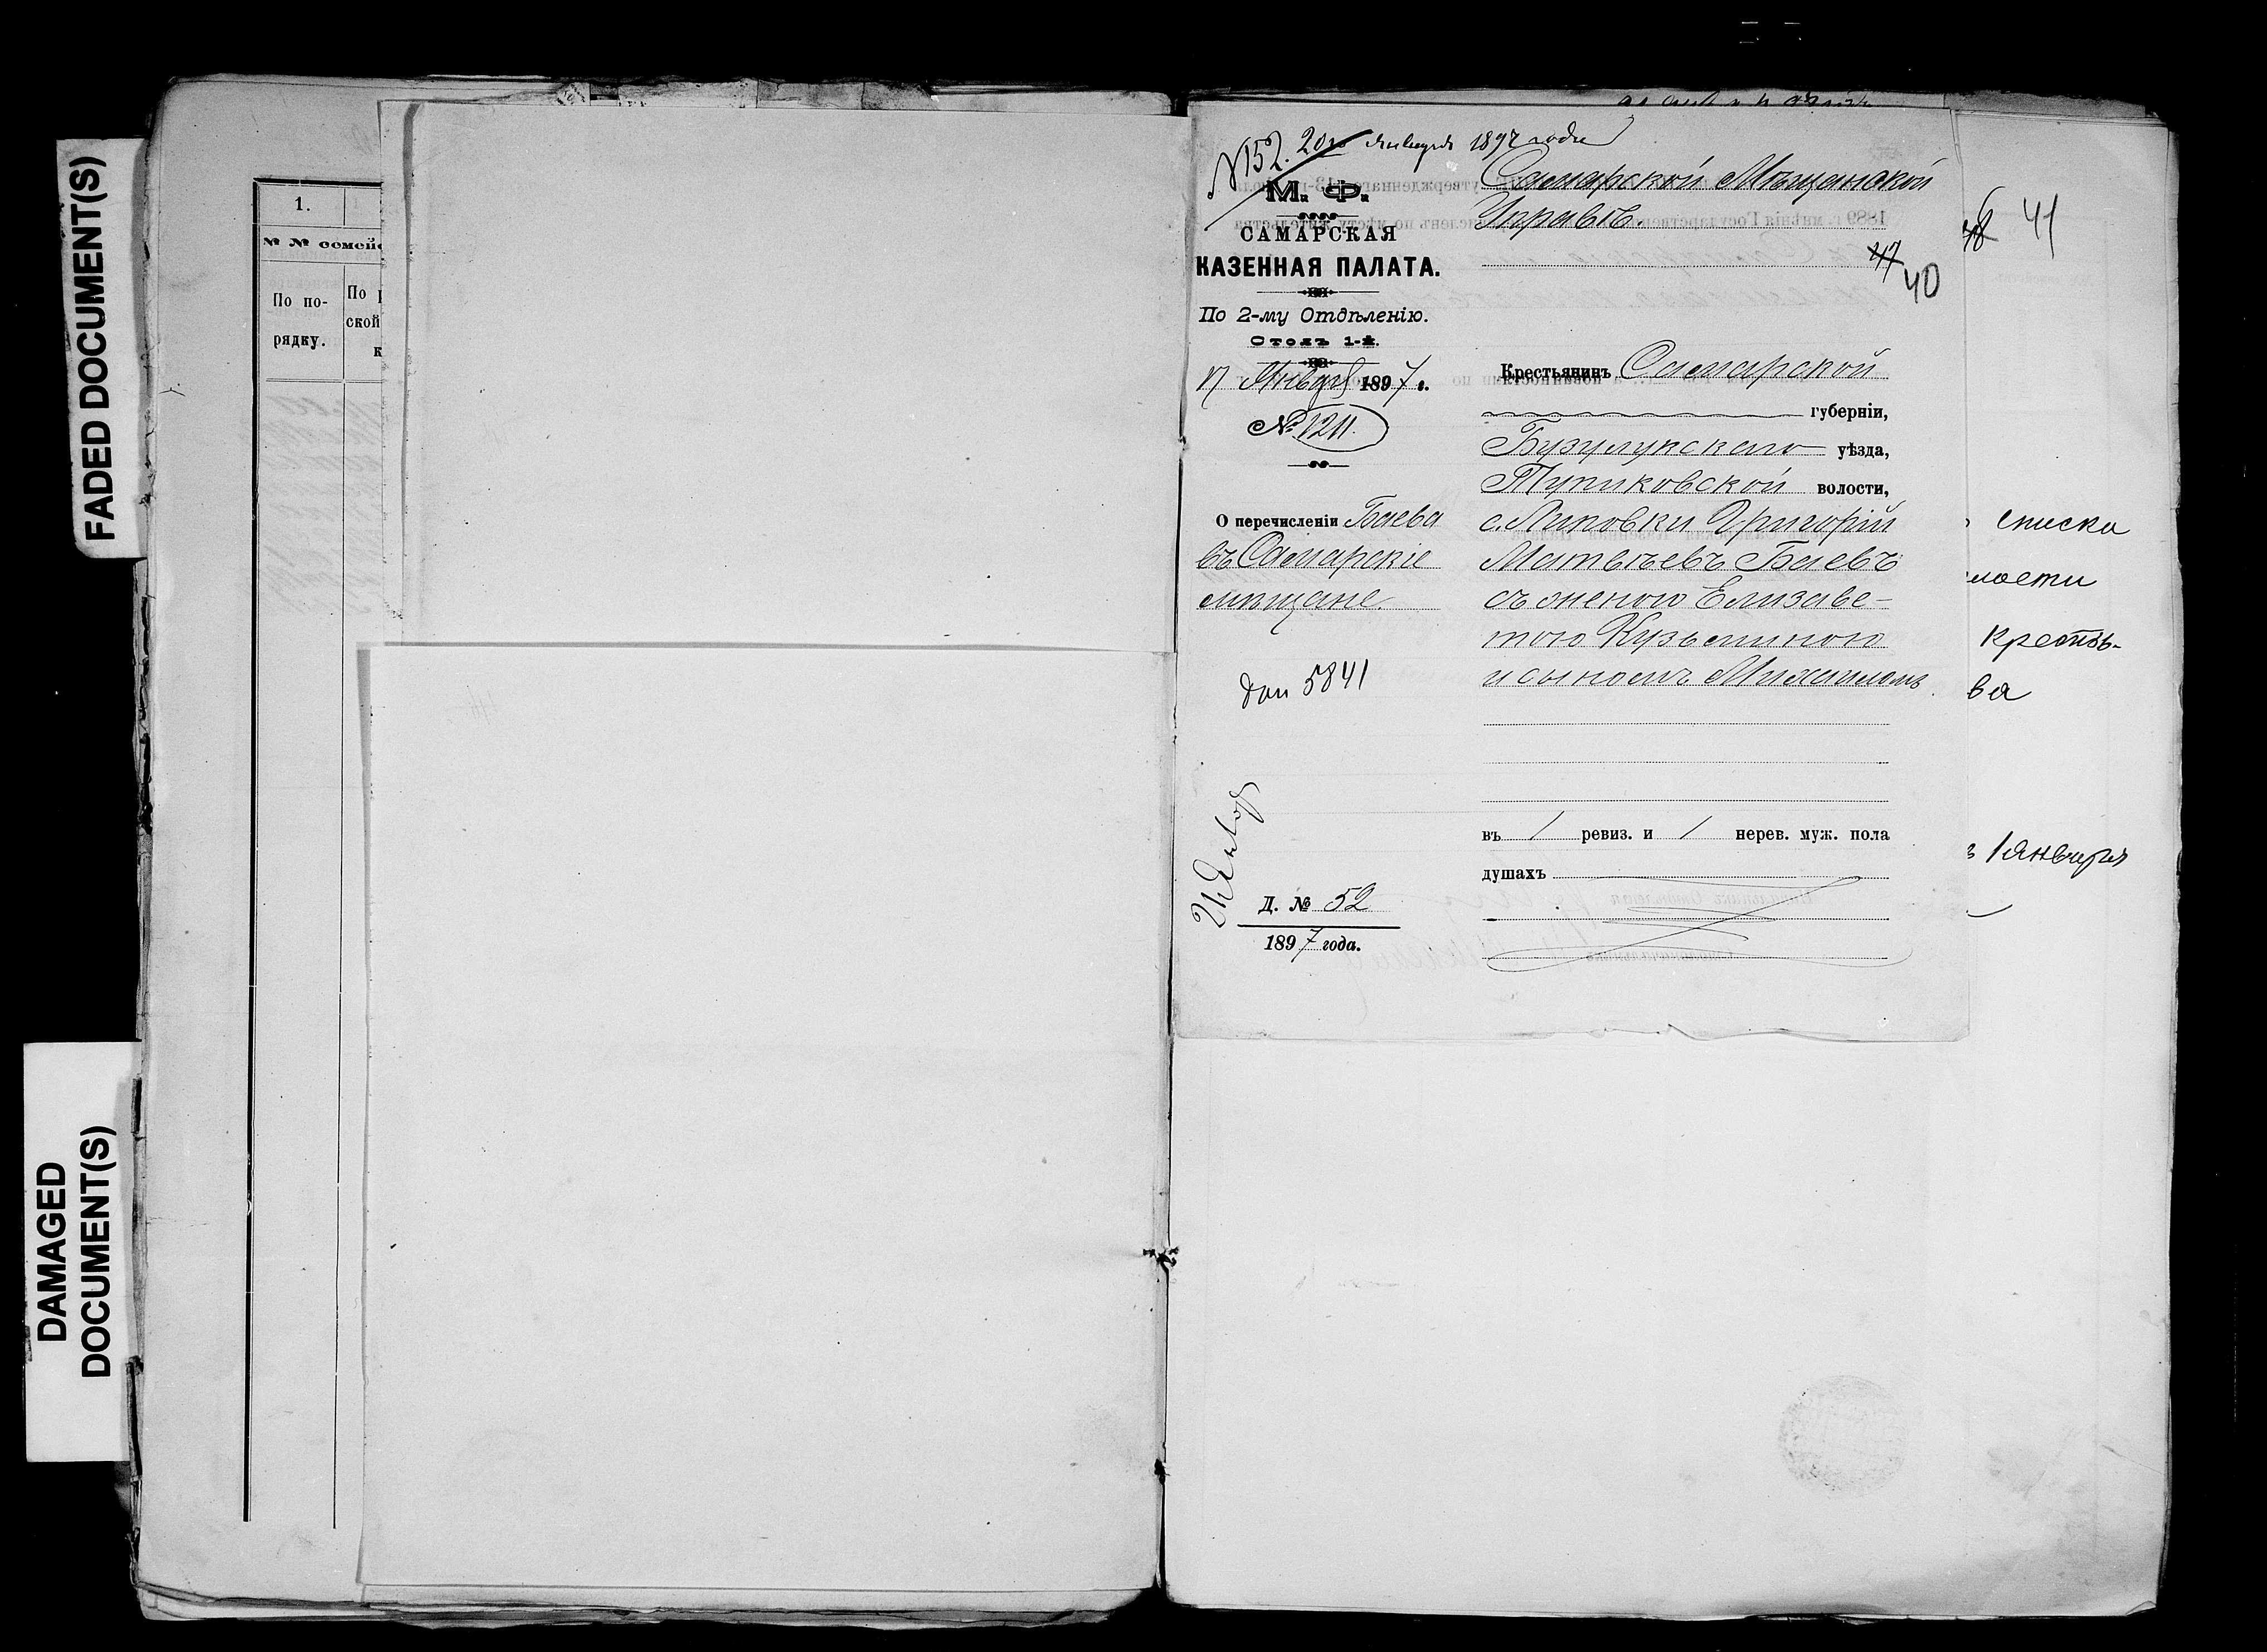 FADED DOCUMENT(S)
DAMAGED
DOCUMENT(S)
1.
№ № семей
По по-
рядку.
По р
ской
к
№152. 20го января 1897 года
М. Ф.
САМАРСКАЯ
КАЗЕННАЯ ПАЛАТА.
По 2-му Отдѣленію.
Столъ 1-й.
17 Января 1897 г.
№ 1211.
О перечисленіи Баева
въ Самарскіе
мѣщане.
5841
Д. № 52
1897 года.
Самарской Мѣщанской
Управѣ.
47
40
Крестьянинъ Самарской
губерніи,
Бузулукскаго уѣзда,
Тупиковской волости,
с. Липовки Григорій
Матвѣевъ Баевъ
съ женою Елизаве-
тою Кузьминою
и сыномъ Михаиломъ
въ 1 ревиз. и 1 нерев. муж. пола
душахъ
41
списка
лости
крестья-
ва
1 января